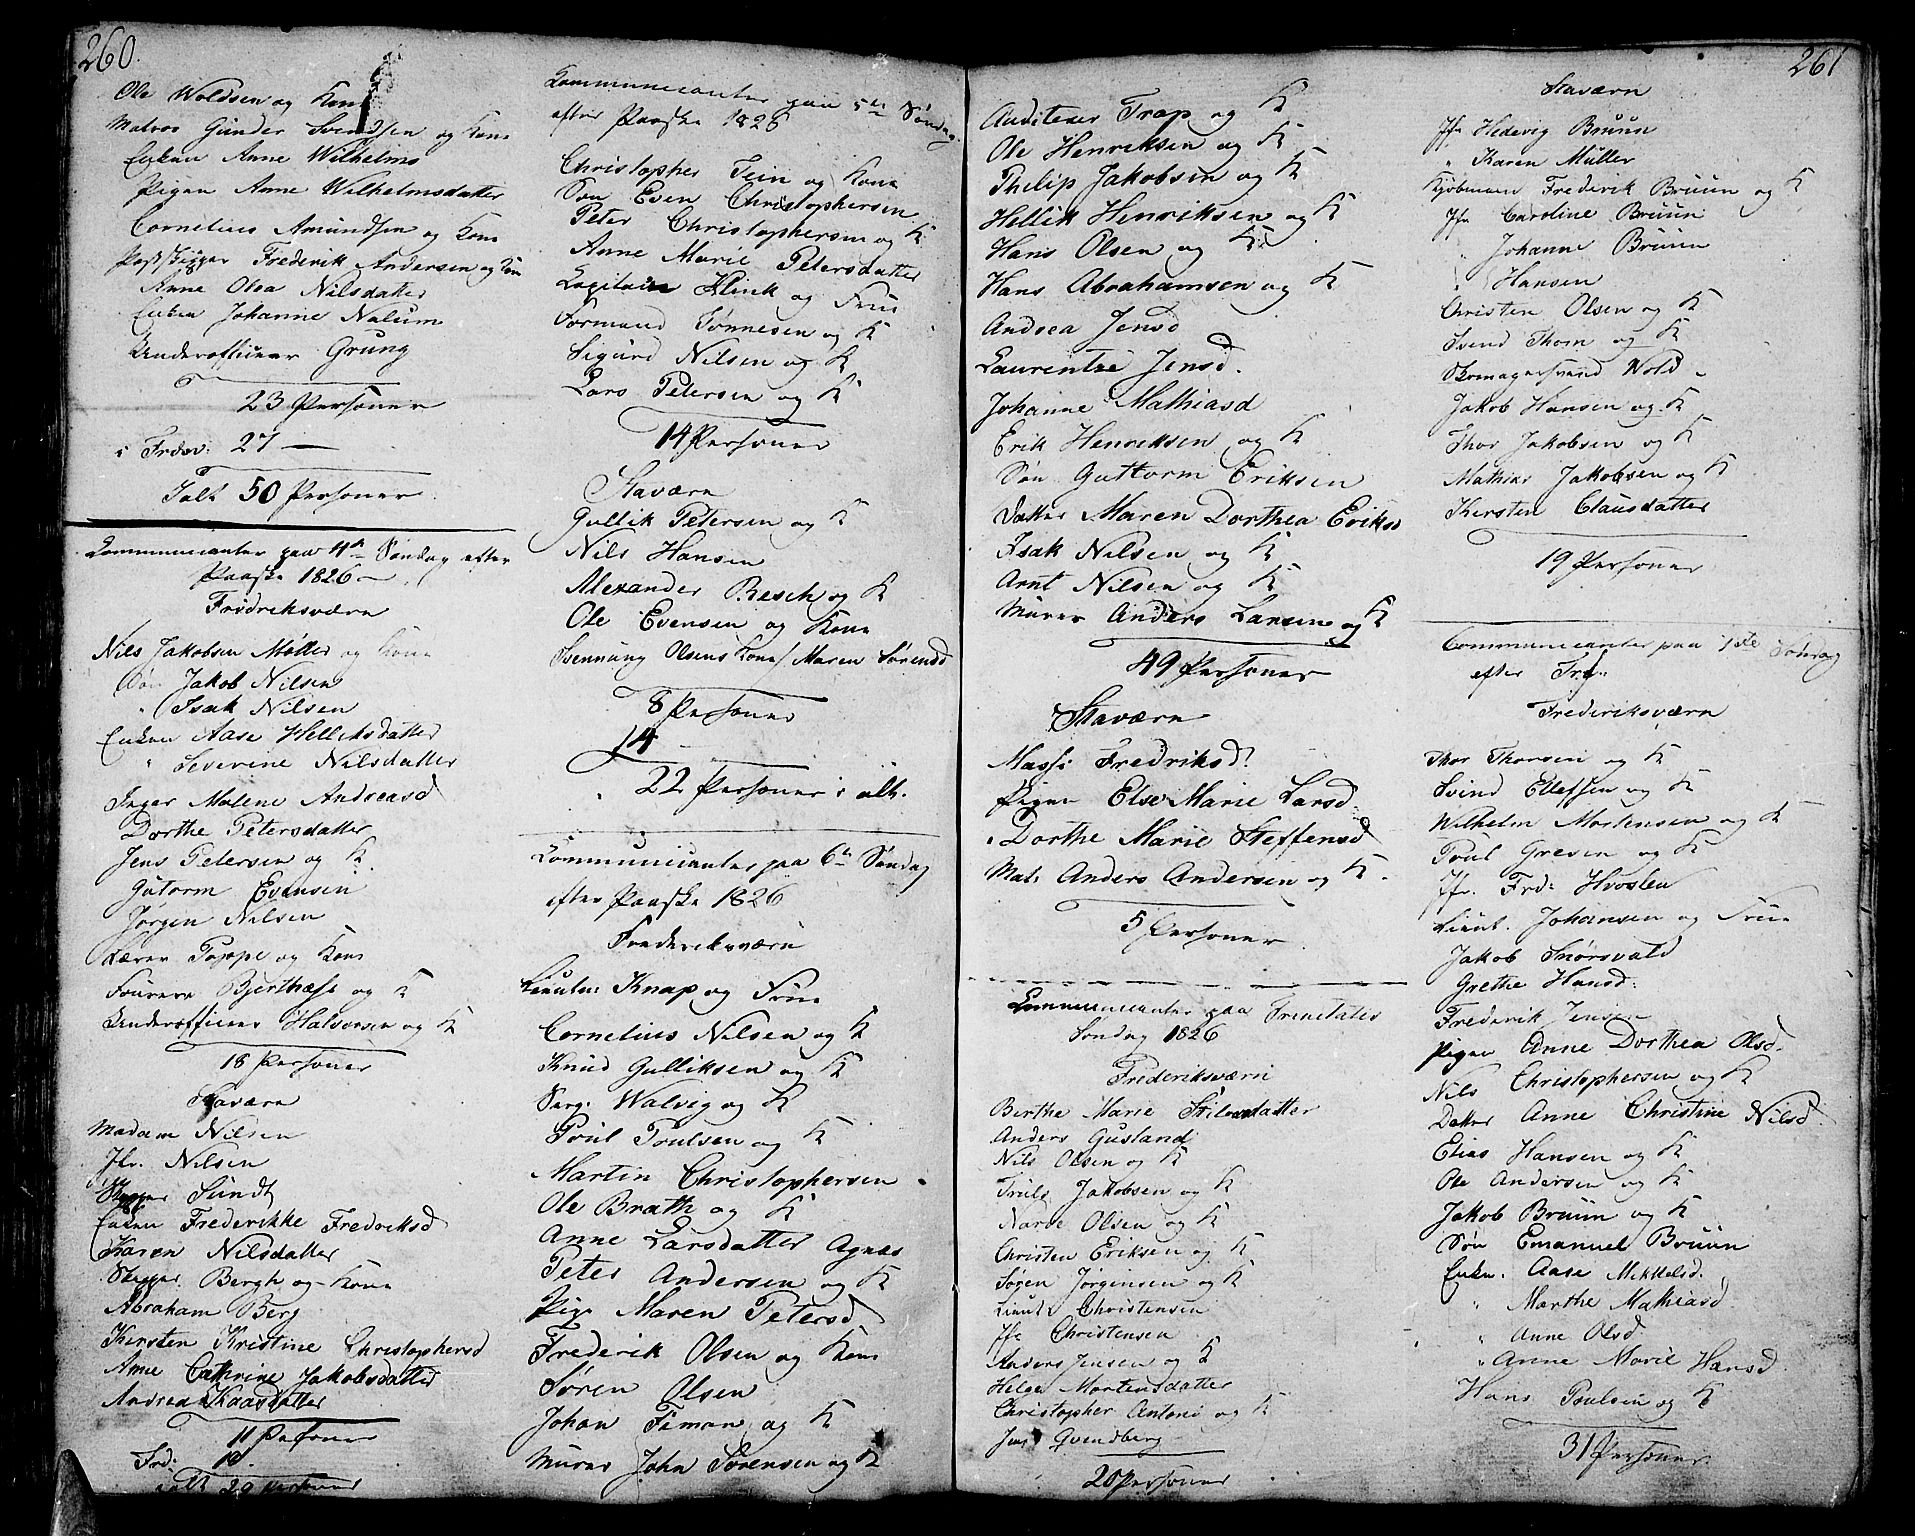 260.
Ole Woldsen og Kone
Matros Gunder Svendsen og Kone
Enken Anne Wilhelms
Pigen Anne Wilhelmsdatter
Cornelius Amundsen og Kone
Frederik Andersen og Kone
Anne Olea Nilsdatter
Enken Johanne Nalum
Underofficerer Grung
23 Personer
i Frdv: 27 —
Talt 50 Personer
Communicanter paa 4de Søndag efter
Paaske 1826 —
Fredriksværn
Nils Jakobsen Møller og Kone
Søn Jakob Nilsen
" Isak Nilsen
Enken Aase Helliksdatter
" Severine Nilsdatter
Inger Malene Andreasd
Dorthe Petersdatter
Jens Petersen og K.
Gutorm Evensen
Jørgen Nilsen
Lærer Poppe og Kone
Bjerthæse og K
Underofficeer Halvorsen og K
18 Personer
Staværn
Madam Nilsen
Jfr. Nilsen
Skipper Sundt
Enken Frederikke Fredriksd
Karen Nilsdatter
Skipper Bergh og Kone
Abraham Berg
Kirsten Kristine Christophersd
Anne Cathrine Jakobsdatter
Andrea Kaasdatter
11 Personer
Frd: 18
Talt 29 Personer
Communicanter paa 5te Søndag
efter Paaske 1826
Christopher Tein og Kone
Søn Even Christophersen
Peter Christophersen og K
Anne Marie Petersdatter
Capitain Klinck og Frue
Formand Tønnesen og K
Sigurd Nilsen og K
Lars Petersen og K
14 Personer
Staværn
Gullik Petersen og K
Nils Hansen
Alexander Resch og K
Ole Evensen og Kone
Svennung Olsens Kone / Maren Sørensd
8 Personer
14
22 Personer i alt.
Communicanter paa 6te Søndag
efter Paaske 1826
Frederiksværn
Lieuten: Knap og Frue
Cornelius Nilsen og K
Knud Gulliksen og K
Serg: Walvig og K
Poul Poulsen og K
Martin Christophersen
Ole Brath og K
Anne Larsdatter Agnæs
Peter Andersen og K
Pige Maren Petersd.
Frederik Olsen og Kone
Søren Olsen
Johan Timan og K
Murer John Sørensen og K
261
Auditeur Trap og K
Ole Henriksen og K
Philip Jakobsen og K
Hellik Henriksen og K
Hans Olsen og K
Hans Abrahamsen og K
Andrea Jensd
Laurentze Jensd.
Johanne Mathiasd
Erik Henriksen og K
Søn Guttorm Eriksen
Datter Maren Dorthea Eriksd
Isak Nilsen og K
Arnt Nilsen og K
Murer Anders Larsen og K
49 Personer
Staværn
Massi Fredriksd.
Pigen Else Marie Larsd.
Dorthe Marie Steffensd
Mat: Anders Andersen og K.
5 Personer
Communicanter paa Trinitatis
Søndag 1826
Frederiksværn
Berthe Marie
Anders Gusland
Nils Olsen og K
Truls Jakobsen og K
Narve Olsen og K
Christen Eriksen og K
Søgen Jørginsen og K
Lieut: Christensen
Jfr Christensen
Anders Jensen og K
Helge Mortensdatter
Christopher Antoni og K
Jens Qvendberg
20 Personer
Staværn
Jfr Hedevig Bruun
" Karen Müller
Kjøbmann Frederik Bruun og K
Jfr Caroline Bruun
" Johanne Bruun
" Hansen
Christen Olsen og K
Svend Thorn og K
Skomagersvend Wold
Jakob Hansen og K
Thor Jakobsen og K
Mathias Jakobsen og K
Kirsten Clausdatter
19 Personer
Communicanter paa 1ste Søndag
efter Trf:
Frederiksværn
Thor Thorsen og K
Svend Ellefsen og K
Wilhelm Mortensen og K
Poul Gresen og K
Jfr. Frd: Hvoslev
Lieut. Johansen og Frue
Jakob Snørsvald
Grethe Hansd:
Frederik Jensen
Pigen Anne Dorthea Olsd.
Nils Christophersen og K
Datter Anne Christine Nilsd.
Elias Hansen og K
Ole Andersen og K
Jakob Bruun og K
Søn Emanuel Bruun
Enken. Aase Mikkelsd.
" Marthe Mathiasd
" Anne Olsd.
" Anne Marie Hansd.
Hans Poulsen og K
31 Personer